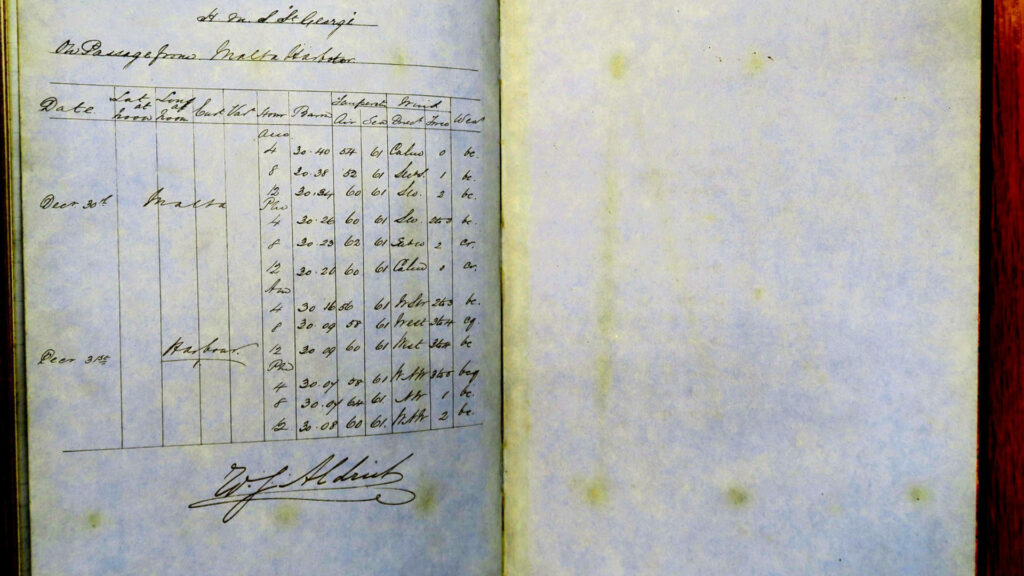 H M S St George
On Passage from Malta Harbour
Date Lat at noon Long at noon Curt Varn Hour Barm Tempert Air Sea Wind Direct Force Weat
Am
4 30.40 54 61 Calm 0 bc.
8 30.38 52 61 1 bc.
12 30.34 60 61 2 bc.
Decr 30th Malta
Pm
4 30.26 60 61 2 to 3 bc.
8 30.23 62 61 2 cr.
12 30.20 60 61 Calm 0 cr.
Am
4 30.16 56 61 2 to 3 bc.
8 30.09 58 61 West 3 to 4 cq.
Decr 31st Harbour. 12 30.09 60 61 West 3 to 4 bc
Pm
4 30.07 58 61 bcq
8 30.07 64 61 NW 1 bc.
12 30.08 60 61. 2 bc.
W. J. Aldrich